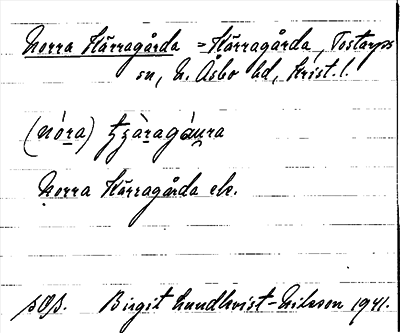 Norra Kärragårda = Kärragårda, Tostarps
sn, N. Åsbo hd, Krist. l.
(nó̱ra) ṯʒàragáu̯ra
Norra Kärragårda ek.
Birgit Lundkvist-Nilsson 1941.